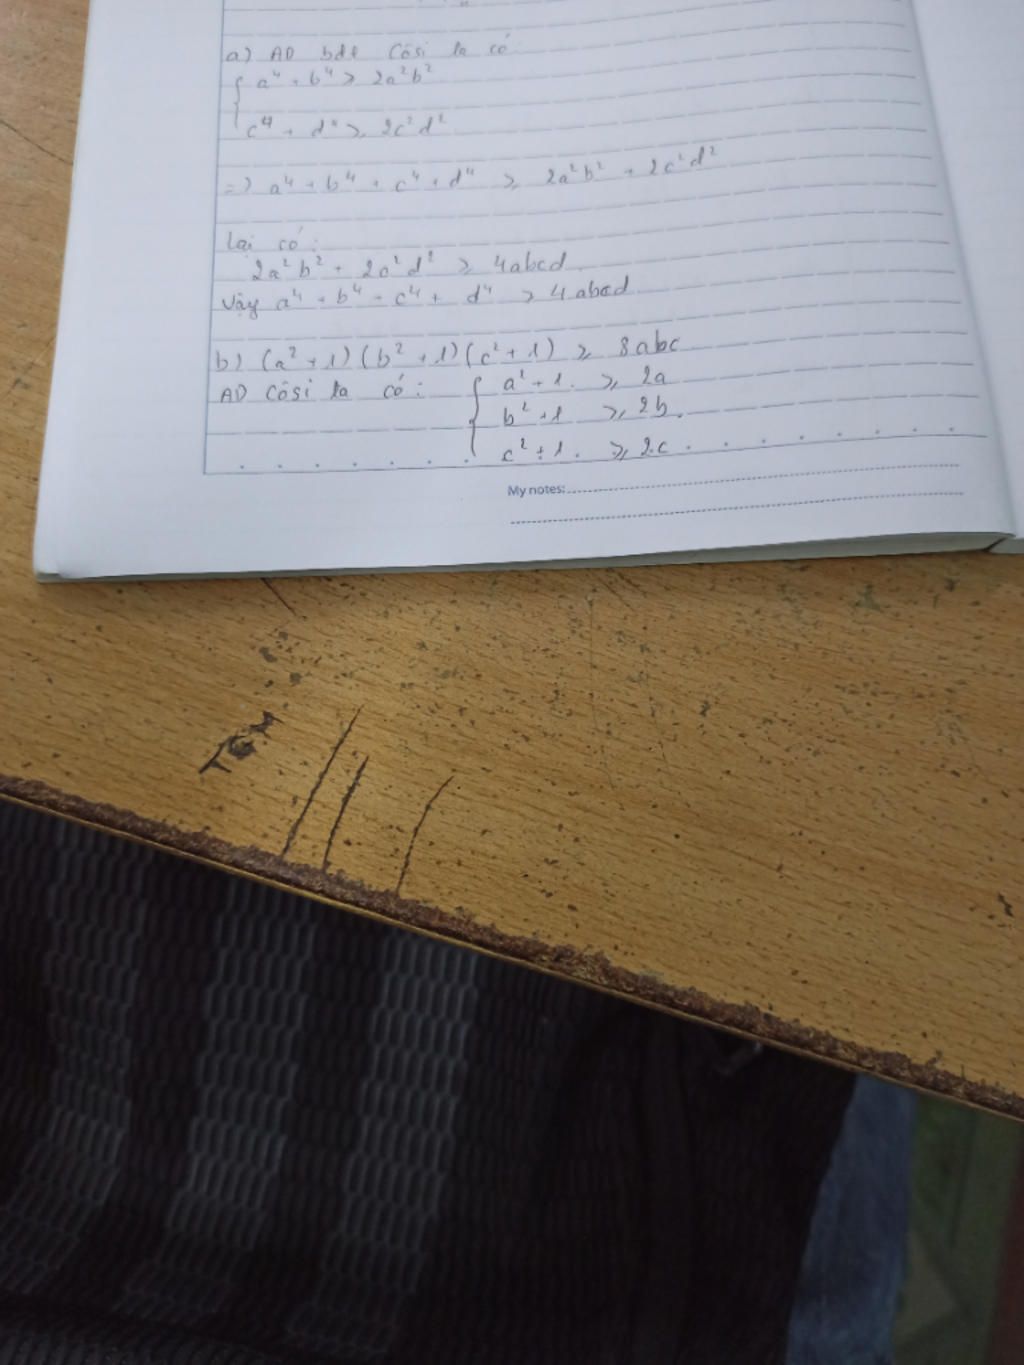 a) AD bđt Côsi ta có:
a⁴ + b⁴ ≥ 2a²b²
c⁴ + d⁴ ≥ 2c²d²
=> a⁴ + b⁴ + c⁴ + d⁴ ≥ 2a²b² + 2c²d²
Lại có:
2a²b² + 2c²d² ≥ 4abcd.
Vậy a⁴ + b⁴ + c⁴ + d⁴ ≥ 4abcd
b) (a² + 1)(b² + 1)(c² + 1) ≥ 8abc
AD Côsi ta có: a² + 1. ≥ 2a
b² + 1 ≥ 2b.
c² + 1. ≥ 2c
My notes: